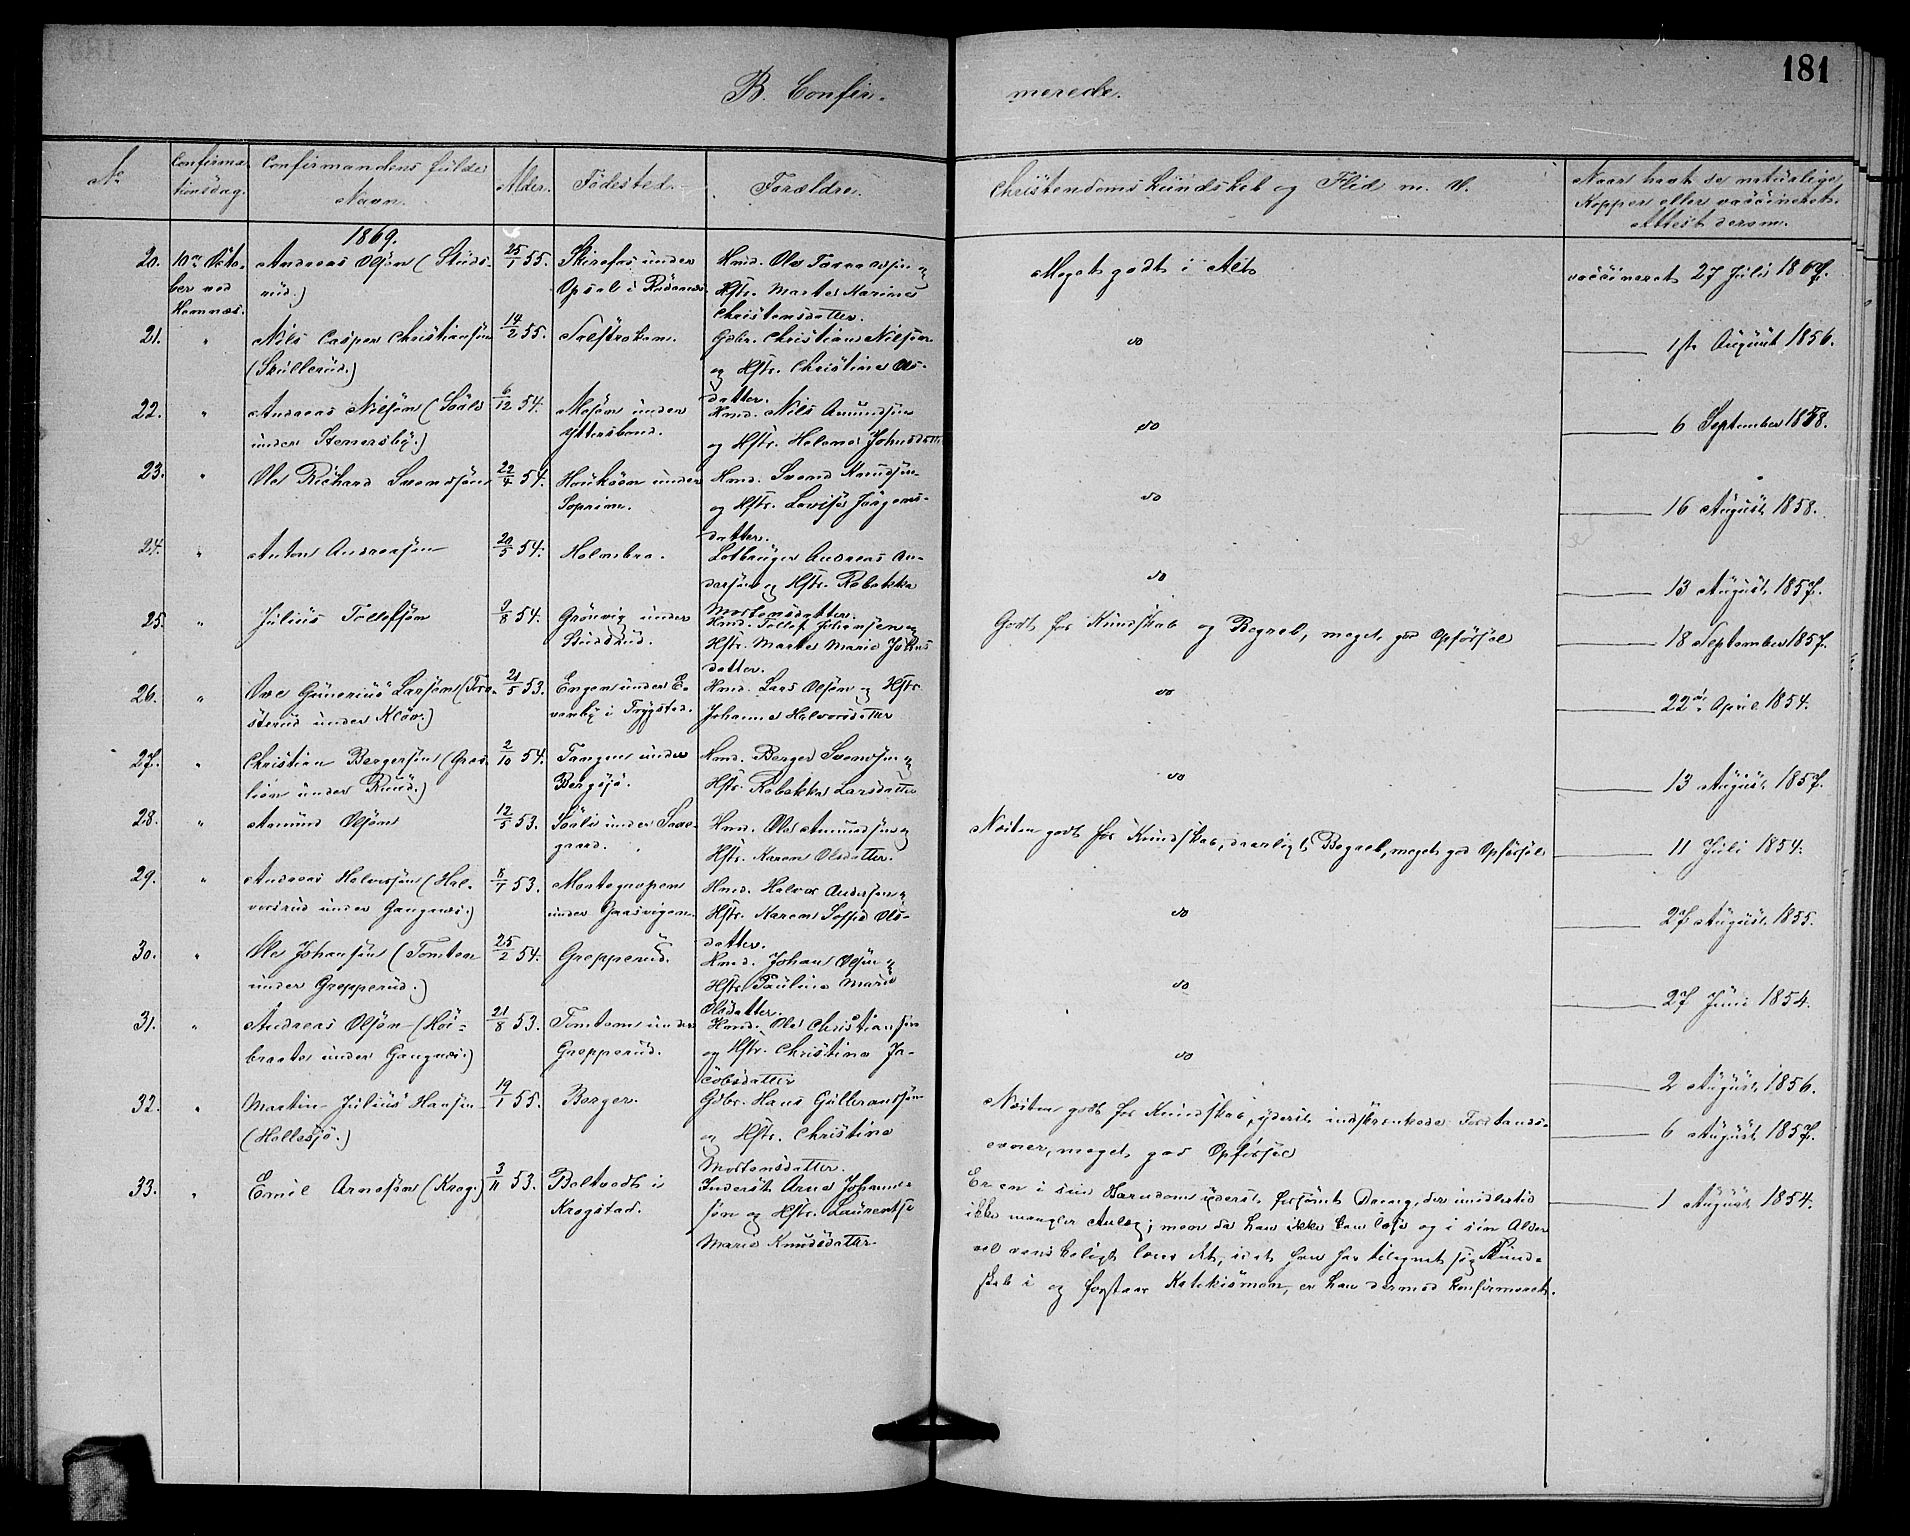 181
B. Confir-
merede.
No
Confirma-
tionsdag.
Confirmandens fulde
Navn.
Alder.
Födested.
Forældre.
Christendomskundskab og Flid m. V.
Naar havt de naturlige
Kopper eller vaccineret.
Attest derom.
1869.
20.
10de Okto-
ber ved
Hemnæs.
Andreas Olsön (Studs-
rud.)
25/1 55.
under
Opsal i Rödenæs.
Hmd. Ole og
Hstr. Marte Karine
Christensdatter.
Meget godt i Alt
vaccineret 27 Juli 1867.
21.
"
Nils Casper Christiansön
(Skullerud.)
14/2 55.
Gdbr. Christian Nilsön
og Hstr. Christine Ols-
datter.
do
1ste August 1856.
22.
"
Andreas Nilsön (Sööli
under Stenersby.)
6/12 54.
Mosön under
Yttersbond.
Hmd. Nils Amundsön
og Hstr. Helene Johnsdatter
do
6 September 1858.
23.
"
Ole Richard Svendsön
22/4 54.
under
Soprim.
Hmd. Svend Knudsön
og Hstr. Lovise Jörgens-
datter.
do
16 August 1858.
24.
"
Anton Andreasön
20/5 54.
Holmbro.
Andreas An-
dersön og Hstr. Rebekka
Mortensdatter.
do
13 August 1857.
25.
"
Julius Tollefsön
9/8 54.
Grönvig under
Studsrud.
Hmd. Tollef Juliansen og
Hstr. Marte Marie Johns
datter.
Godt for Kundskab og Begreb, meget god Opförsel
18 September 1857.
26.
"
Ove Gunerius Larsön (Tra-
sterud under Klöv.)
21/5 53.
Engen under
i Trygstad.
Hmd. Lars Olsön og Hstr.
Johanne Halvorsdatter
do
22de April 1854.
27.
"
Christian Bergersön (Græs-
liön under Ruud.)
2/10 54.
Tangen under
Bergsjö.
Hmd. Berger Svendsön og
Hstr. Rebekka Larsdatter
do
13 August 1857.
28.
"
Amund Olsön
12/5 53.
Sööli under
gaard.
Hmd. Ole Amundsön og
Hstr. Karen Olsdatter.
Næsten godt for Kundskab, daarligt Begreb, meget god Opförsel
11 Juli 1854.
29.
"
Andreas Halvorsön (Hal-
vorsrud under Gangnæs.)
8/7 53.
under Gaasvigen.
Hmd. Halvor Andersön og
Hstr. Karen Soffie Ols-
datter.
do
27 August 1855.
30.
"
Ole Johansön (Tomten
under Grepperud.)
25/2 54.
Grepperud.
Hmd. Johan Olsön og
Hstr. Pauline Marie
Olsdatter.
do
27 Juni 1854.
31.
"
Andreas Olsön (Höi-
braate under Gangnæs.)
21/8 53.
Tomten under
Grepperud.
Hmd. Ole Christiansön
og Hstr. Christine Ja-
cobsdatter
do
2 August 1856.
32.
"
Martin Julius Hansön
(Hallesjö.)
19/1 55.
Berger.
Gdbr. Hans Gulbrandsön
og Hstr. Christine
Mortensdatter.
Næsten godt for Kundskab, yderst indskrænkede Forstands-
evner, meget god Opförsel
6 August 1857.
33.
"
Emil Arnesön (Krog.)
3/11 53.
Boltvedt i
Krogstad.
Inderst Arne Johanne-
sön og Hstr. Laurentse
Marie Knudsdatter.
Er en i sin Barndom yderst forsömt Dreng, der imidlertid
ikke mangler Anlæg; men da han ikke kan læse og i sin Alder
vel vanskeligt lærer det, idet han har tilegnet sig Kund-
skab i og forstaar Katekismen, er han dermed konfirmeret.
1 August 1854.